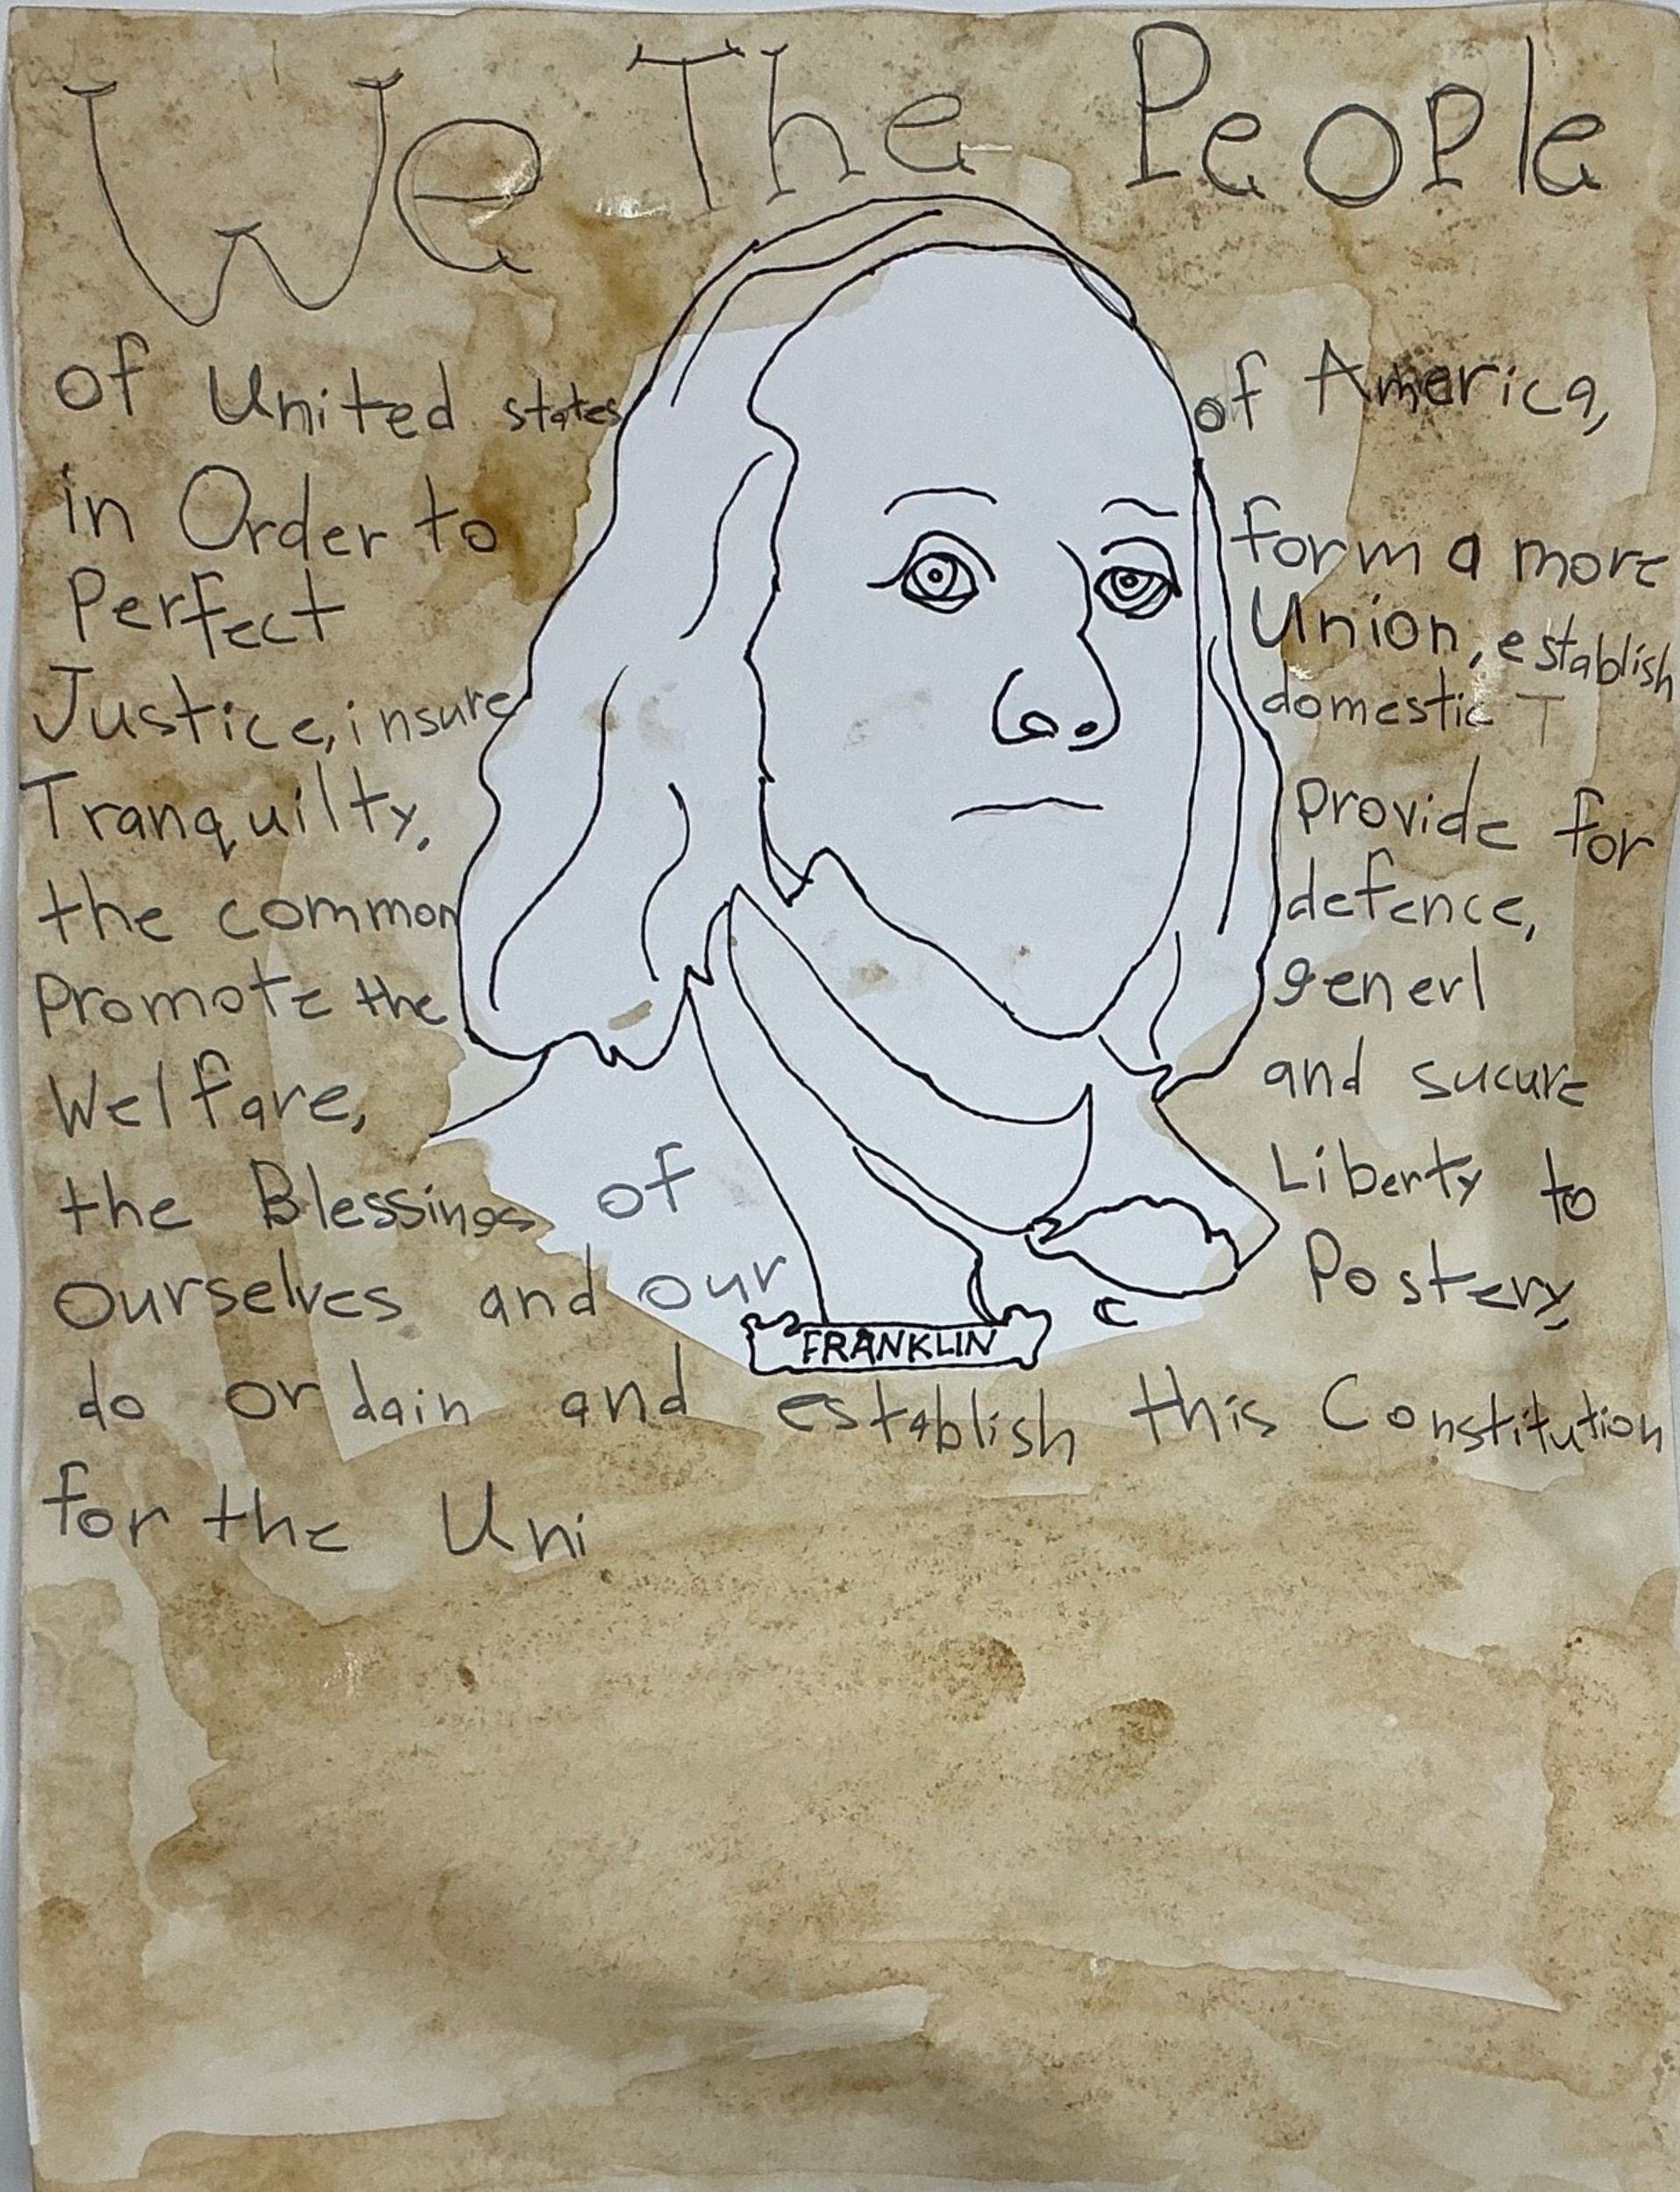 We The People
of United states of America,
in Order to form a more
Perfect Union, establish
Justice, insure domestic T
Tranquilty, Provide for
the common defence,
Promote the generl
Welfare, and sucure
the Blessings of Liberty to
Ourselves and our Postery,
FRANKLIN
do ordain and establish this Constitution
for the Uni